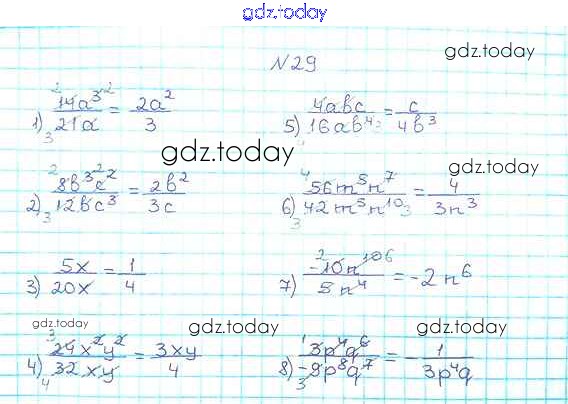 gdz.today
№29
gdz.today
1) 14a³/21a = 2a²/3
5) 4abc/16ab⁴ = c/4b³
gdz.today
2) 8b³c²/12bc³ = 2b²/3c
gdz.today
6) 56m⁵n⁷/42m⁵n¹⁰ = 4/3n³
3) 5x/20x = 1/4
7) -10n¹⁰/5n⁴ = -2n⁶
gdz.today
gdz.today
gdz.today
4) 24x²y²/32xy = 3xy/4
8) 3p⁴q⁶/-9p⁸q⁷ = -1/3p⁴q